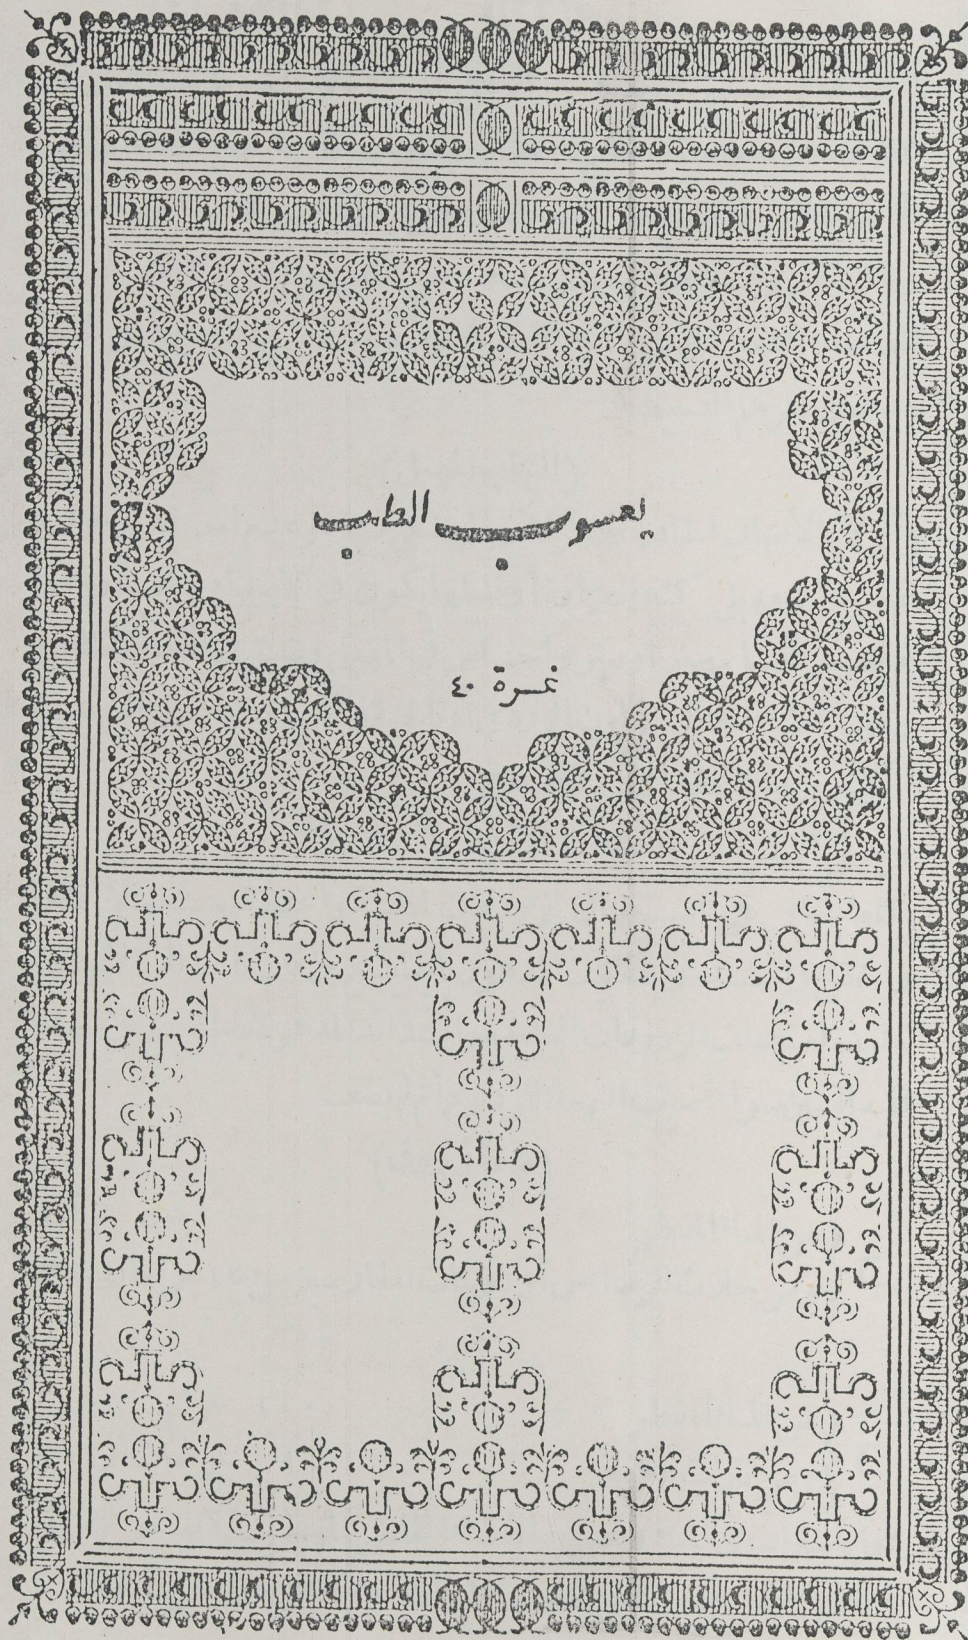 يعسوب الطب
نمرة ٤٠